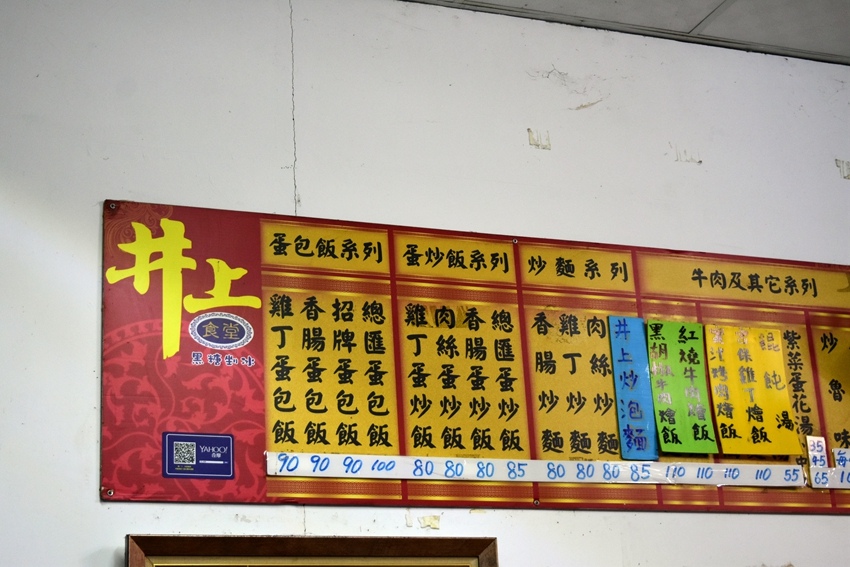 井上
食堂
黑糖剉冰
YAHOO!
奇摩
蛋包飯系列
雞丁蛋包飯
香腸蛋包飯
招牌蛋包飯
總匯蛋包飯
90 90 90 100
蛋炒飯系列
雞丁蛋炒飯
肉絲蛋炒飯
香腸蛋炒飯
總匯蛋炒飯
80 80 80 85
炒麵系列
香腸炒麵
雞丁炒麵
肉絲炒麵
井上炒泡麵
80 80 80 85
牛肉及其它系列
黑胡椒牛肉燴飯
紅燒牛肉燴飯
燴飯
雞丁燴飯
餛飩湯
紫菜蛋花湯
110 110 110 110 55
35
45
65
炒
魯味